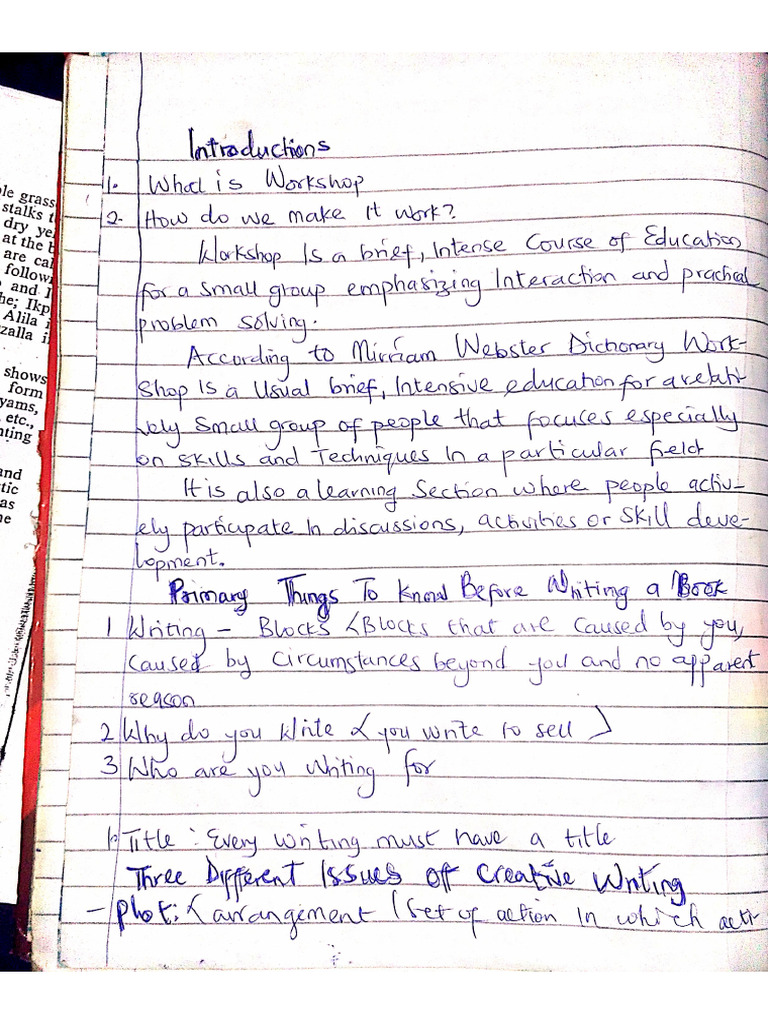 Introductions
1. What is Workshop
2. How do we make it work?
Workshop Is a brief, Intense Course of Education
for a small group emphasizing Interaction and practical
problem solving.
According to Mirriam Webster Dictionary Work-
Shop Is a Usual brief, Intensive education for a relati-
vely Small group of people that focuses especially
on skills and Techniques In a particular field
It is also a learning Section where people activ-
ely participate In discussions, activities or Skill deve-
lopment.
Primary Things To Know Before Writing a Book
1 Writing - Blocks <Blocks that are caused by you,
Caused by Circumstances beyond you and no apparent
reason
2 Why do you Write < you write to sell >
3 Who are you Writing for
1. Title : Every writing must have a title
Three Different Issues off Creative Writing
- Plot: < arrangement / set of action In which acti-
le grass
stalks
dry ye
at the b
are cal
follow
and I
he; Ikp
Alila
zalla i
shows
form
yams,
etc.,
nting
and
tic
as
he